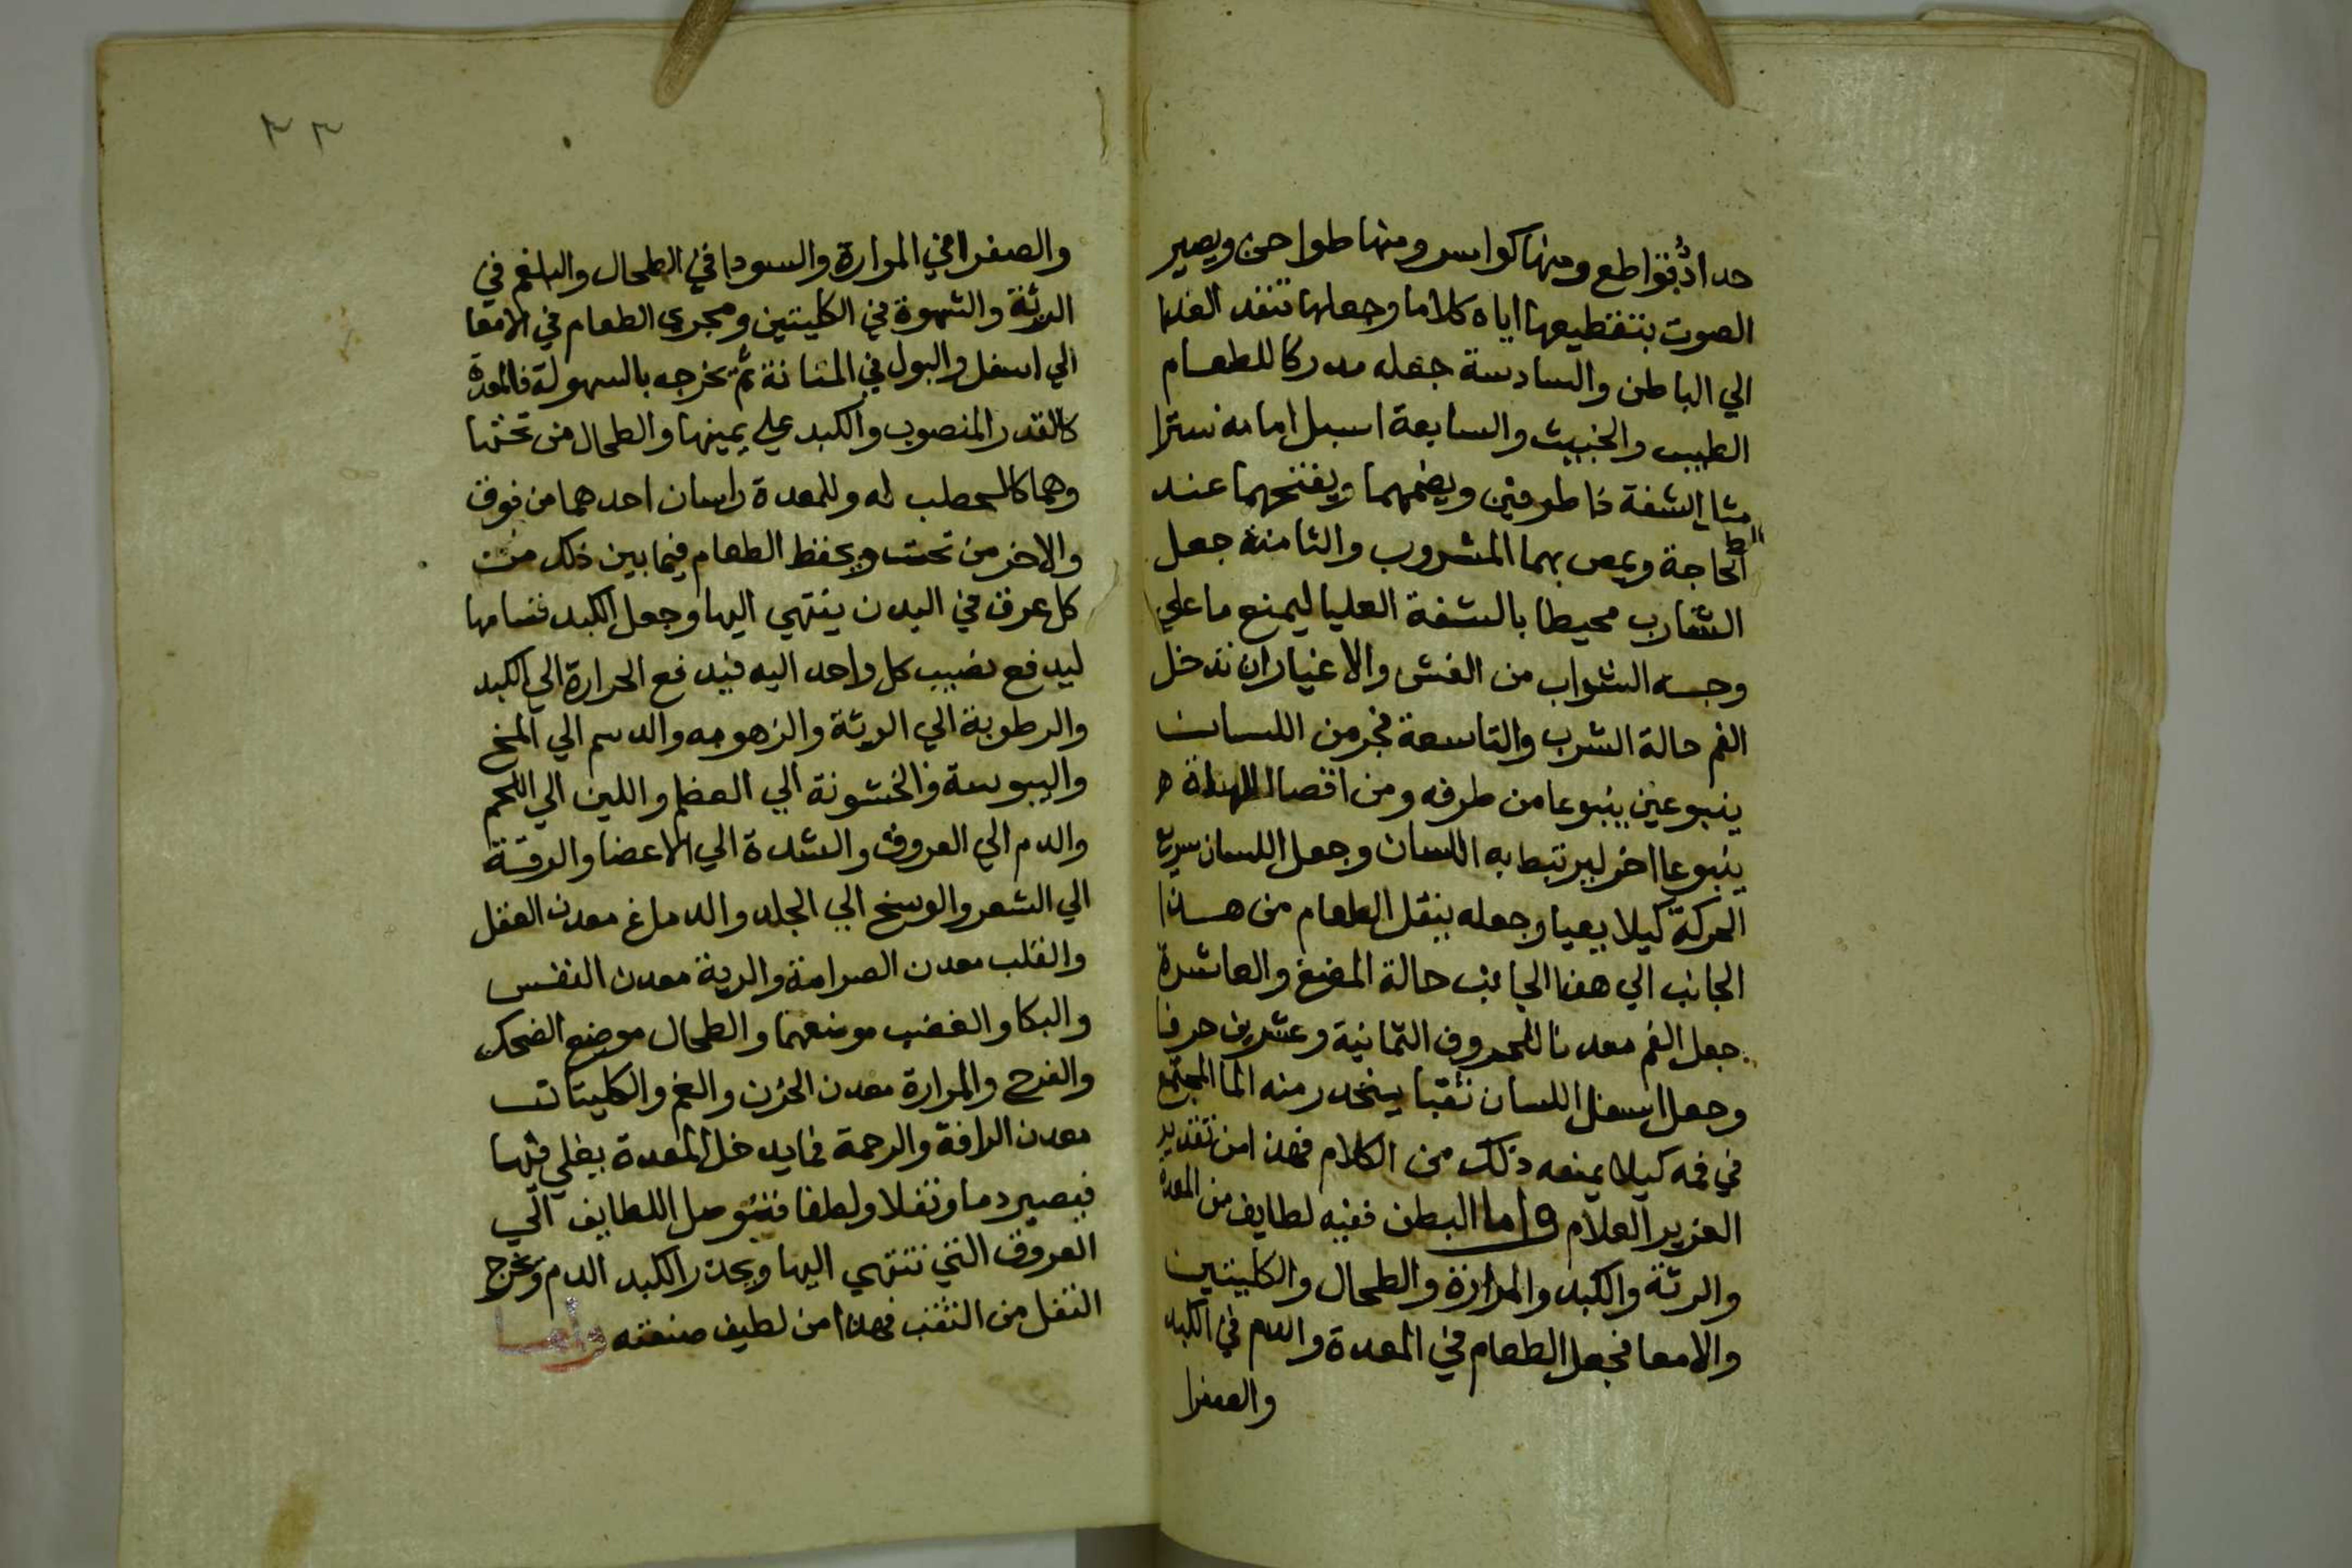 حدادُ قواطع ومنها كواسر ومنها طواحن ويصير
الصوت بتقطيعها اياه كلاما وجعلها تنفد الغدا
الي الباطن والسادسة جعله مدركا للطعام
الطيب والخبيث والسابعة اسبل امامه سترا
الشفة ذا طرفين ويضمهما ويفتحهما عند
الحاجة ويمص بهما المشروب والثامنة جعل
الشارب محيطا بالشفة العليا ليمنع ما علي
وجه الشراب من الغش والاغيار ان تدخل
الفم حالة الشرب والتاسعة فجر من اللسان
ينبوعين ينبوعا من طرفه ومن اقصا اللهاة ه
ينبوعا اخر ليرتبط به اللسان وجعل اللسان سريع
الحركة كيلا يعيا وجعله ينقل الطعام من هذا
الجانب الي هذا الجانب حالة المضغ والعاشرة
جعل الفم معدنا للحروف الثمانية وعشرين حرفا
وجعل اسفل اللسان نقبا ينحدر منه الما المجتمع
في فمه كيلا يمنعه ذلك من الكلام فهذا من تقدير
العزيز العلام واما البطن ففيه لطايف من المعدة
والرئة والكبد والمرارة والطحال والكليتين
والامعا فجعل الطعام في المعدة والدم في الكبد
والصفرا
٣٣
والصفرا في المرارة والسودا في الطحال والبلغم في
الرئة والشهوة في الكليتين ومجري الطعام في الامعا
الي اسفل والبول في المثانة ثم يخرجه بالسهولة فالمعدة
كالقدر المنصوب والكبد علي يمينها والطحال من تحتها
وهما كالحطب له وللمعدة راسان احدهما من فوق
والاخر من تحت ويحفظ الطعام فيما بين ذلك من
كل عرق في البدن ينتهي اليها وجعل الكبد قسامها
ليدفع نصيب كل واحد اليه فيدفع الحرارة الي الكبد
والرطوبة الي الرئة والزهومه والدسم الي المخ
واليبوسة والخشونة الي العظم واللين الي اللحم
والدم الي العروق والشدة الي الاعضا والرقة
الي الشعر والوسخ الي الجلد والدماغ معدن العقل
والقلب معدن الصرامة والرية معدن النفس
والبكا والغضب موضعهما والطحال موضع الضحك
والفرح والمرارة معدن الحزن والغم والكليتان
معدن الرافة والرحمة فما يدخل المعدة يغلي فيها
فيصير دما وثفلا ولطفا فتوصل اللطايف الي
العروق التي تنتهي اليها ويحدر الكبد الدم وتخرج
الثفل من الثقب فهذا من لطيف صنعته واما